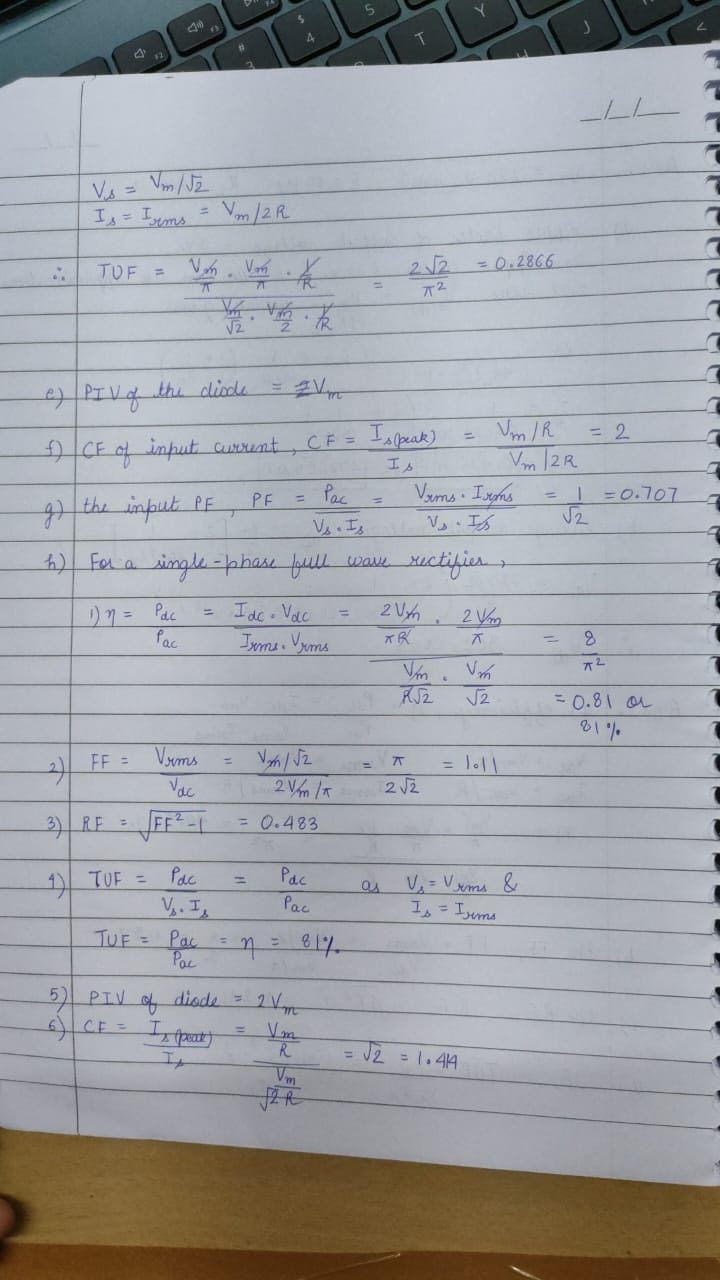 _/_/_
Vs = Vm/√2
Is = Irms = Vm/2R
∴ TUF = (Vm/π · Vm/π · 1/R) / (Vm/√2 · Vm/2 · 1/R) = 2√2/π² = 0.2866
e) PIV of the diode = Vm
f) CF of input current, CF = Is(peak)/Is = (Vm/R)/(Vm/2R) = 2
g) the input PF, PF = Pac/(Vs·Is) = (Vrms·Irms)/(Vs·Is) = 1/√2 = 0.707
h) For a single-phase full wave rectifier,
1) η = Pdc/Pac = (Idc·Vdc)/(Irms·Vrms) = (2Vm/πR · 2Vm/π) / (Vm/R√2 · Vm/√2) = 8/π²
= 0.81 or
81%
2) FF = Vrms/Vdc = (Vm/√2)/(2Vm/π) = π/2√2 = 1.11
3) RF = √(FF²-1) = 0.483
4) TUF = Pdc/(Vs·Is) = Pdc/Pac as Vs = Vrms &
Is = Irms
TUF = Pdc/Pac = η = 81%
5) PIV of diode = 2Vm
6) CF = Is(peak)/Is = (Vm/R)/(Vm/√2R) = √2 = 1.414